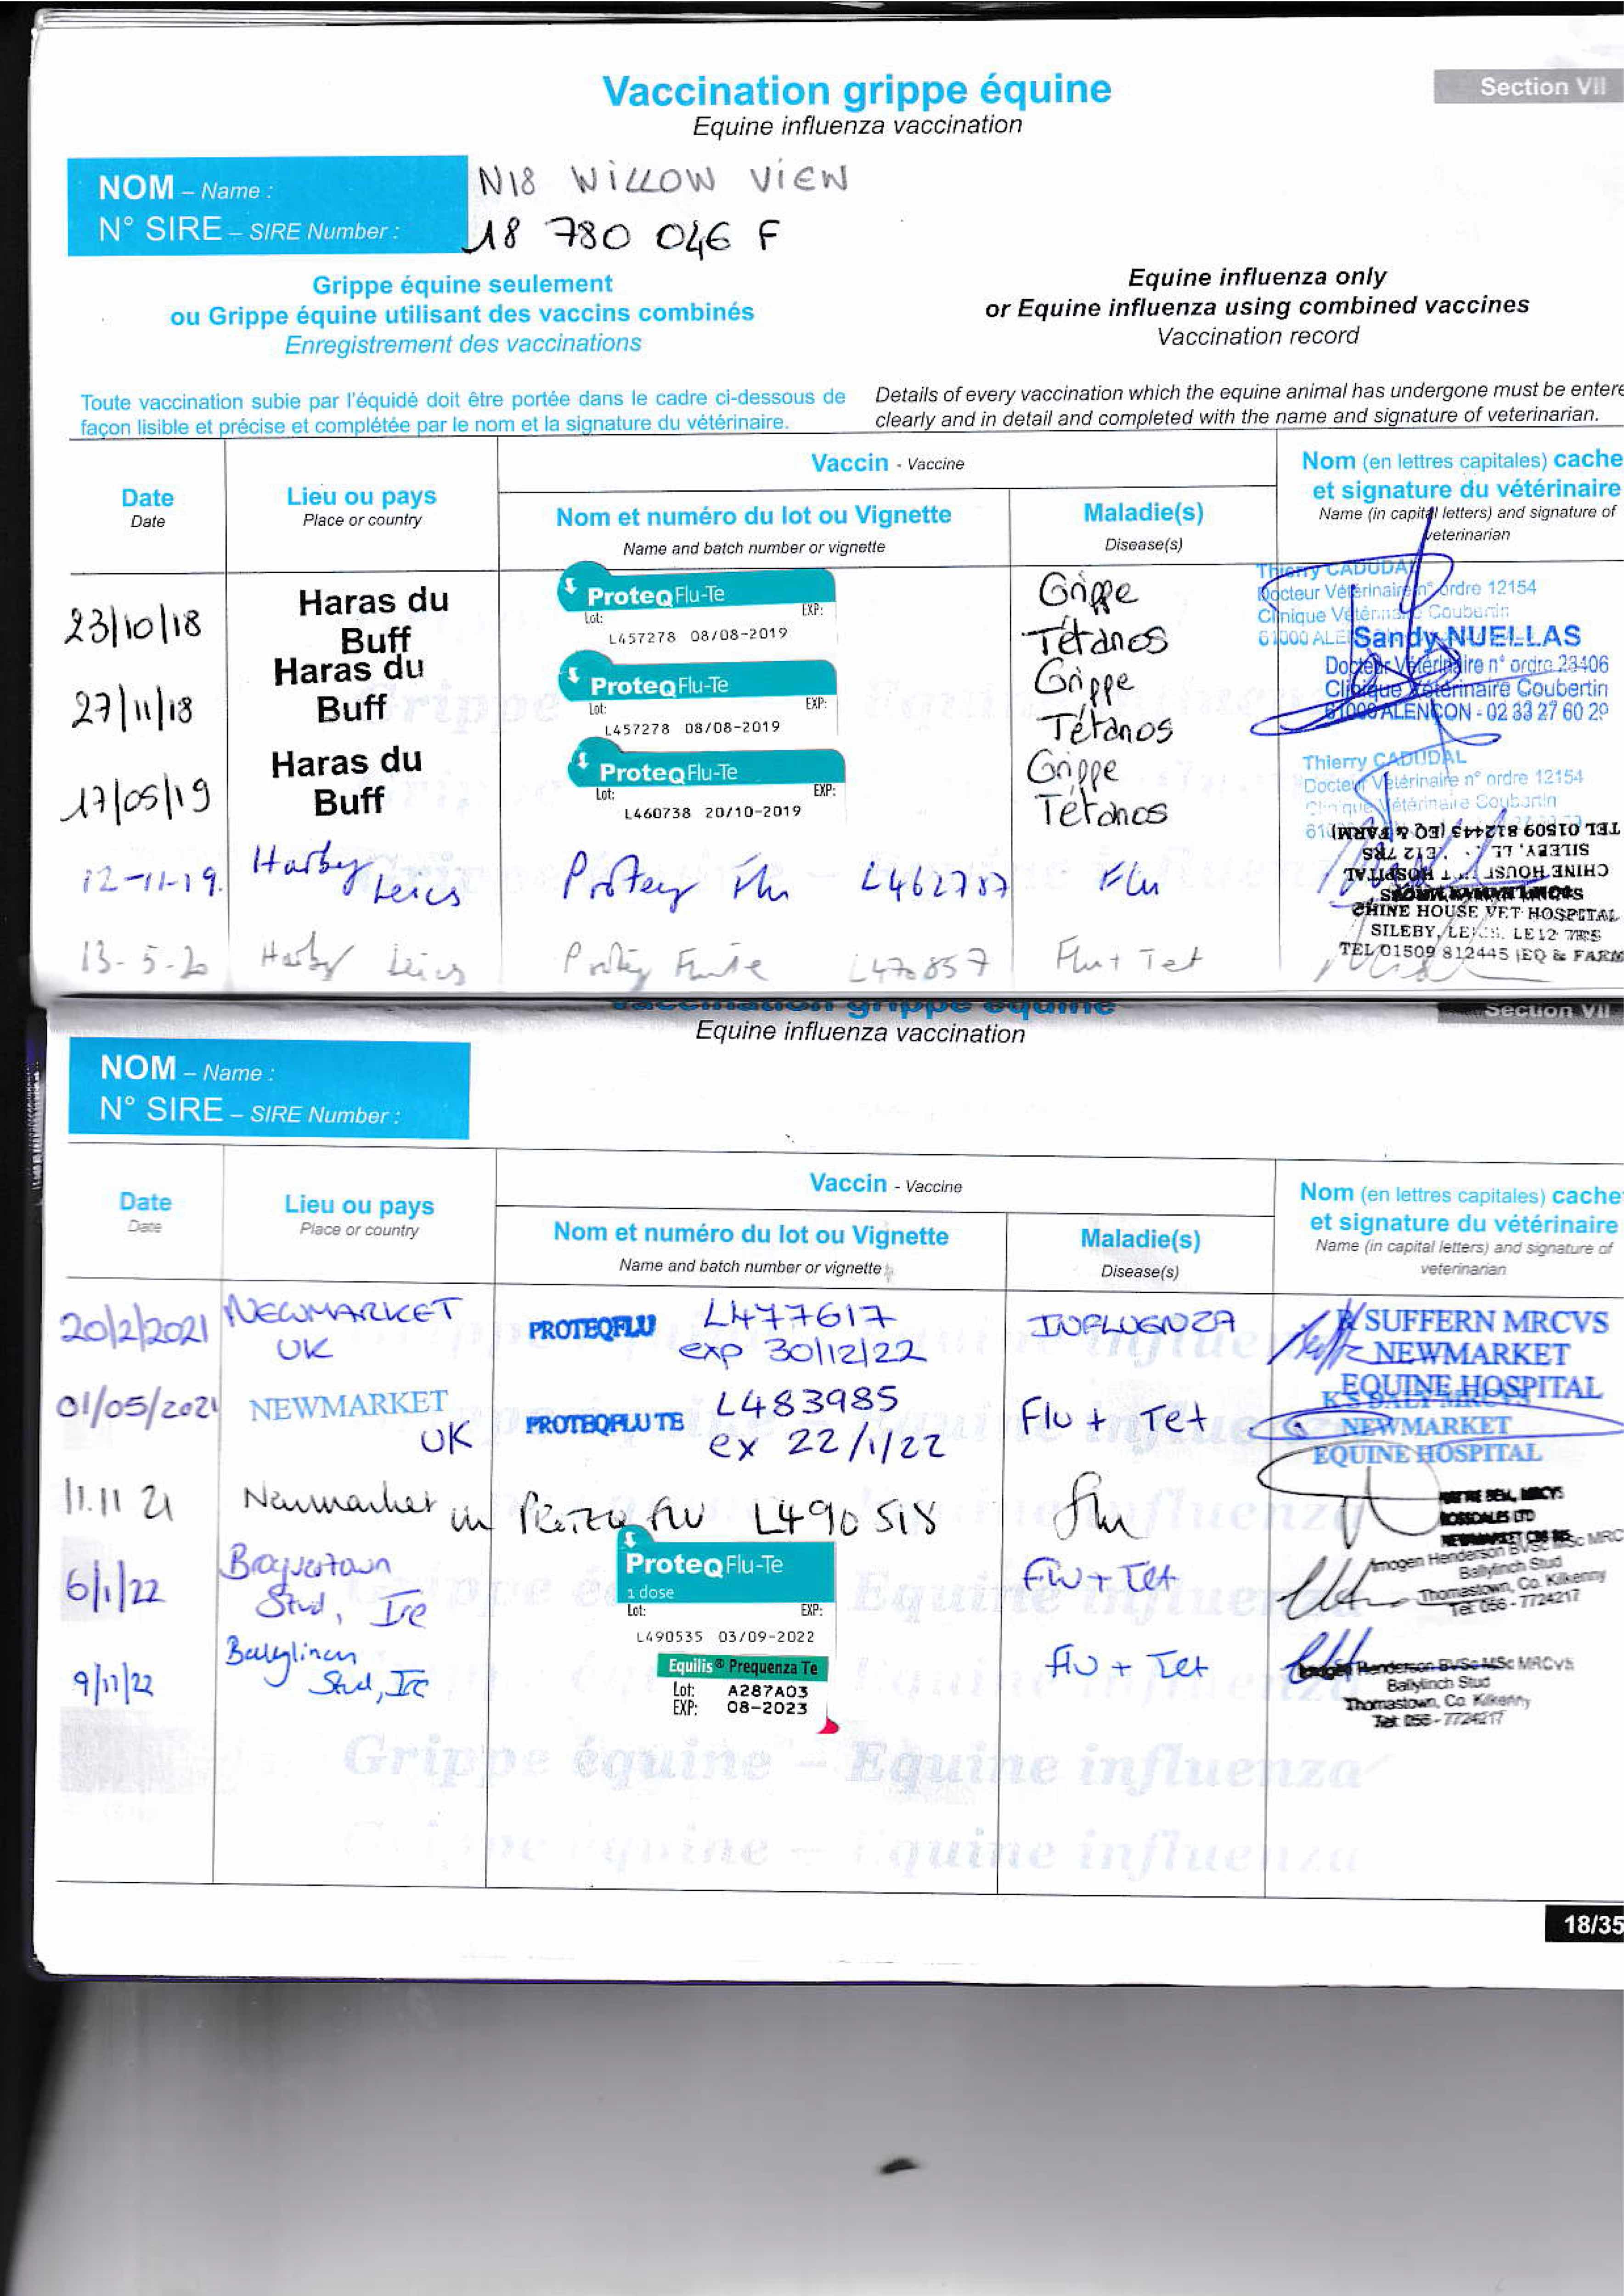 Vaccination grippe équine
Section VII
Equine influenza vaccination
NOM – Name :
N18 WILLOW VIEW
N° SIRE – SIRE Number :
18 780 046 F
Grippe équine seulement
ou Grippe équine utilisant des vaccins combinés
Enregistrement des vaccinations
Equine influenza only
or Equine influenza using combined vaccines
Vaccination record
Toute vaccination subie par l'équidé doit être portée dans le cadre ci-dessous de
façon lisible et précise et complétée par le nom et la signature du vétérinaire.
Details of every vaccination which the equine animal has undergone must be entere
clearly and in detail and completed with the name and signature of veterinarian.
Date
Date
Lieu ou pays
Place or country
Vaccin - Vaccine
Nom et numéro du lot ou Vignette
Name and batch number or vignette
Maladie(s)
Disease(s)
Nom (en lettres capitales) cache
et signature du vétérinaire
Name (in capital letters) and signature of
veterinarian
23/10/18
Haras du
Buff
ProteqFlu-Te
Lot: EXP:
L457278 08/08-2019
Grippe
Tétanos
Thierry CADUDAL
Docteur Vétérinaire n° ordre 12154
Clinique Vétérinaire Coubertin
61000 ALE
27/11/18
Haras du
Buff
ProteqFlu-Te
Lot: EXP:
L457278 08/08-2019
Grippe
Tétanos
Sandy NUELLAS
Docteur Vétérinaire n° ordre 23406
Clinique Vétérinaire Coubertin
61000 ALENCON - 02 33 27 60 29
17/05/19
Haras du
Buff
ProteqFlu-Te
Lot: EXP:
L460738 20/10-2019
Grippe
Tétanos
Thierry CADUDAL
Docteur Vétérinaire n° ordre 12154
Clinique Vétérinaire Coubertin
12-11-19.
Harby
Leics
Proteq Flu L462787
Flu
TEL 01509 812445 (EQ & FARM)
CHINE HOUSE VET HOSPITAL
13-5-20
Harby Leics
Proteq Flu te L470857
Flu + Tet
CHINE HOUSE VET HOSPITAL
SILEBY, LEICS. LE12 7RS
TEL 01509 812445 (EQ & FARM
Vaccination grippe équine
Section VII
Equine influenza vaccination
NOM – Name :
N° SIRE – SIRE Number :
Date
Date
Lieu ou pays
Place or country
Vaccin - Vaccine
Nom et numéro du lot ou Vignette
Name and batch number or vignette
Maladie(s)
Disease(s)
Nom (en lettres capitales) cache
et signature du vétérinaire
Name (in capital letters) and signature of
veterinarian
20/2/2021
NEWMARKET
UK
PROTEQFLU
L477617
exp 30/12/22
INFLUENZA
SUFFERN MRCVS
NEWMARKET
EQUINE HOSPITAL
01/05/2021
NEWMARKET
UK
PROTEQFLU TE
L483985
ex 22/1/22
Flu + Tet
K S DALY MRCVS
NEWMARKET
EQUINE HOSPITAL
11.11 21
Newmarket
L490518
flu
BELL, MRCVS
ROSSDALES LTD
6/1/22
Stud, Ire
ProteqFlu-Te
1 dose
Lot: EXP:
L490535 03/09-2022
Flu + Tet
Imogen Henderson BVSc MSc MRC
Ballylinch Stud
Thomastown, Co. Kilkenny
Tel: 056 - 7724217
9/11/22
Ballylinch
Stud, Ire
Equilis® Prequenza Te
Lot: A287A03
EXP: 08-2023
Flu + Tet
Imogen Henderson BVSc MSc MRCVS
Ballylinch Stud
Thomastown, Co. Kilkenny
Tel: 056 - 7724217
Grippe équine – Equine influenza
Grippe équine – Equine influenza
18/35